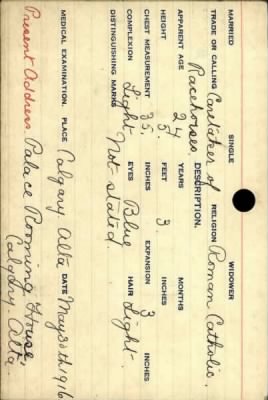 MARRIED SINGLE WIDOWER
TRADE OR CALLING Caretaker of RELIGION Roman Catholic.
Racehorses. DESCRIPTION.
APPARENT AGE 24 YEARS MONTHS
HEIGHT 5 FEET 3 INCHES
CHEST MEASUREMENT 35 INCHES EXPANSION 3 INCHES
COMPLEXION Light EYES Blue HAIR Light.
DISTINGUISHING MARKS Not stated.
MEDICAL EXAMINATION. PLACE Calgary Alta DATE May 30th 1916
Present Address. Palace Rooming House,
Calgary. Alta